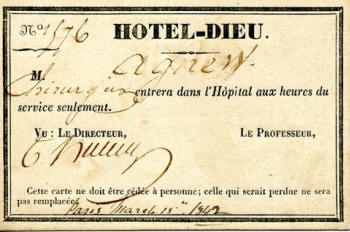 No 1576
HOTEL-DIEU.
M. Agnew
Chirurgien entrera dans l'Hôpital aux heures du
service seulement.
VU : LE DIRECTEUR, LE PROFESSEUR,
Cette carte ne doit être cédée à personne; celle qui serait perdue ne sera
pas remplacée.
Paris March 15th 1842